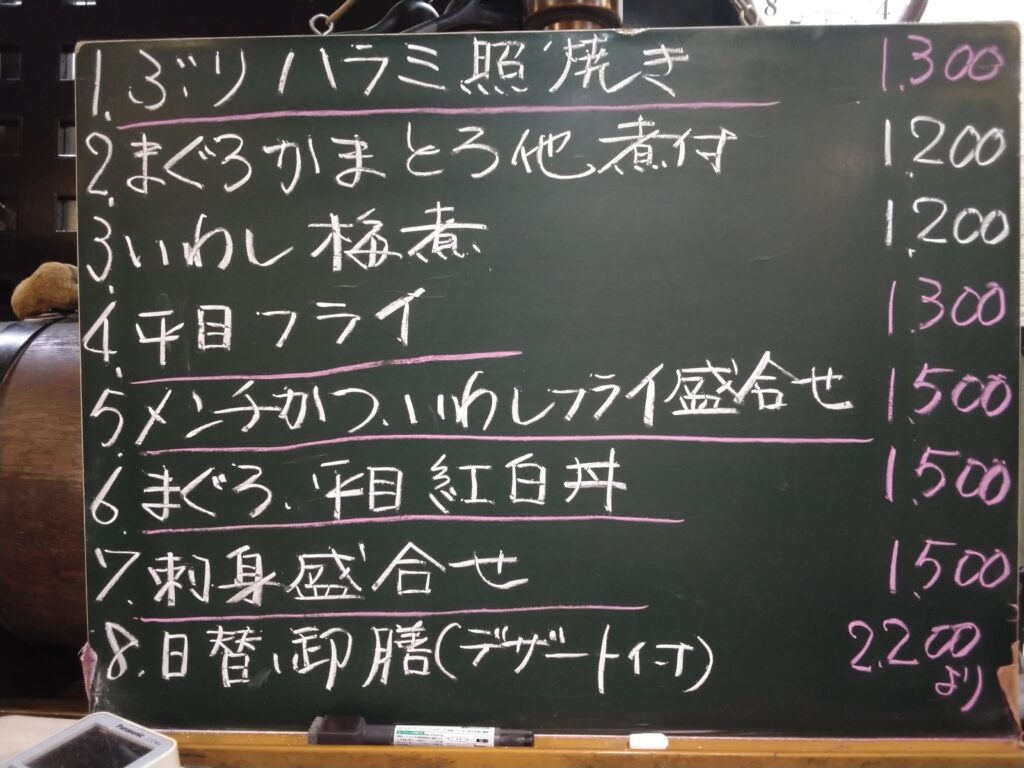 1. ぶりハラミ照焼き 1.300
2. まぐろかまとろ他、煮付 1.200
3. いわし梅煮 1.200
4. 平目フライ 1.300
5. メンチかつ、いわしフライ盛合せ 1.500
6. まぐろ、平目紅白丼 1.500
7. 刺身盛合せ 1.500
8. 日替、御膳(デザート付) 2.200より
Panasonic
8 4